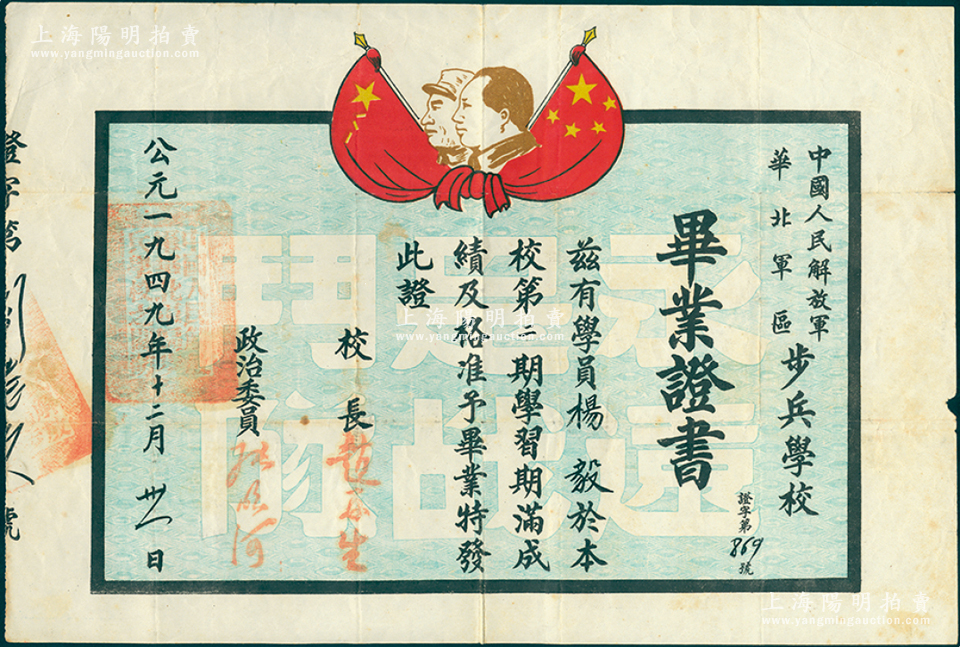 中國人民解放軍
華北軍區
步兵學校
畢業證書
證字第869號
兹有學員楊毅於本
校第五期學習期滿成
績及格准予畢業特發
此證
校長
政治委員
公元一九四九年十二月卅一日
證字第
號
永遠是戰鬥隊
上海陽明拍賣
www.yangmingauction.com
上海陽明拍賣
www.yangmingauction.com
上海陽明拍賣
www.yangmingauction.com